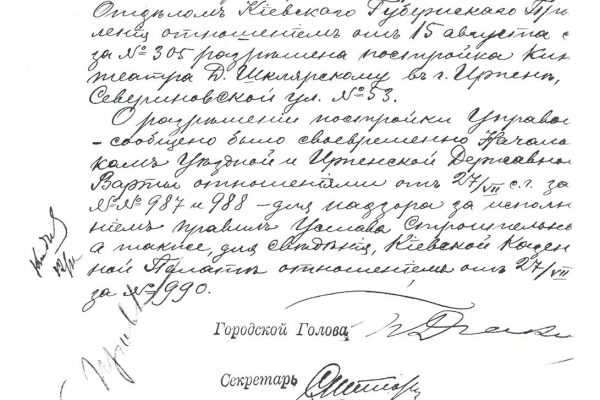 Отдѣломъ Кіевскаго Губернскаго Пра
ленія отношеніемъ отъ 15 августа с
за № 305 разрѣшена постройка Кин
театра Д. Шклярскому въ г. Ирпень,
Севериновской ул. № 53.
О разрѣшеніи постройки Управою
- сообщено было своевременно Началь
камъ Уѣздной и Ирпенской Державной
Варты отношеніями отъ 27/VII с.г. за
№№ 987 и 988 - для надзора за исполн
ніемъ правилъ Устава Строительна
а также, для свѣдѣнія, Кіевской Казен
ной Палатѣ отношеніемъ отъ 27/VII
за № 990.
Городской Голова
Секретарь